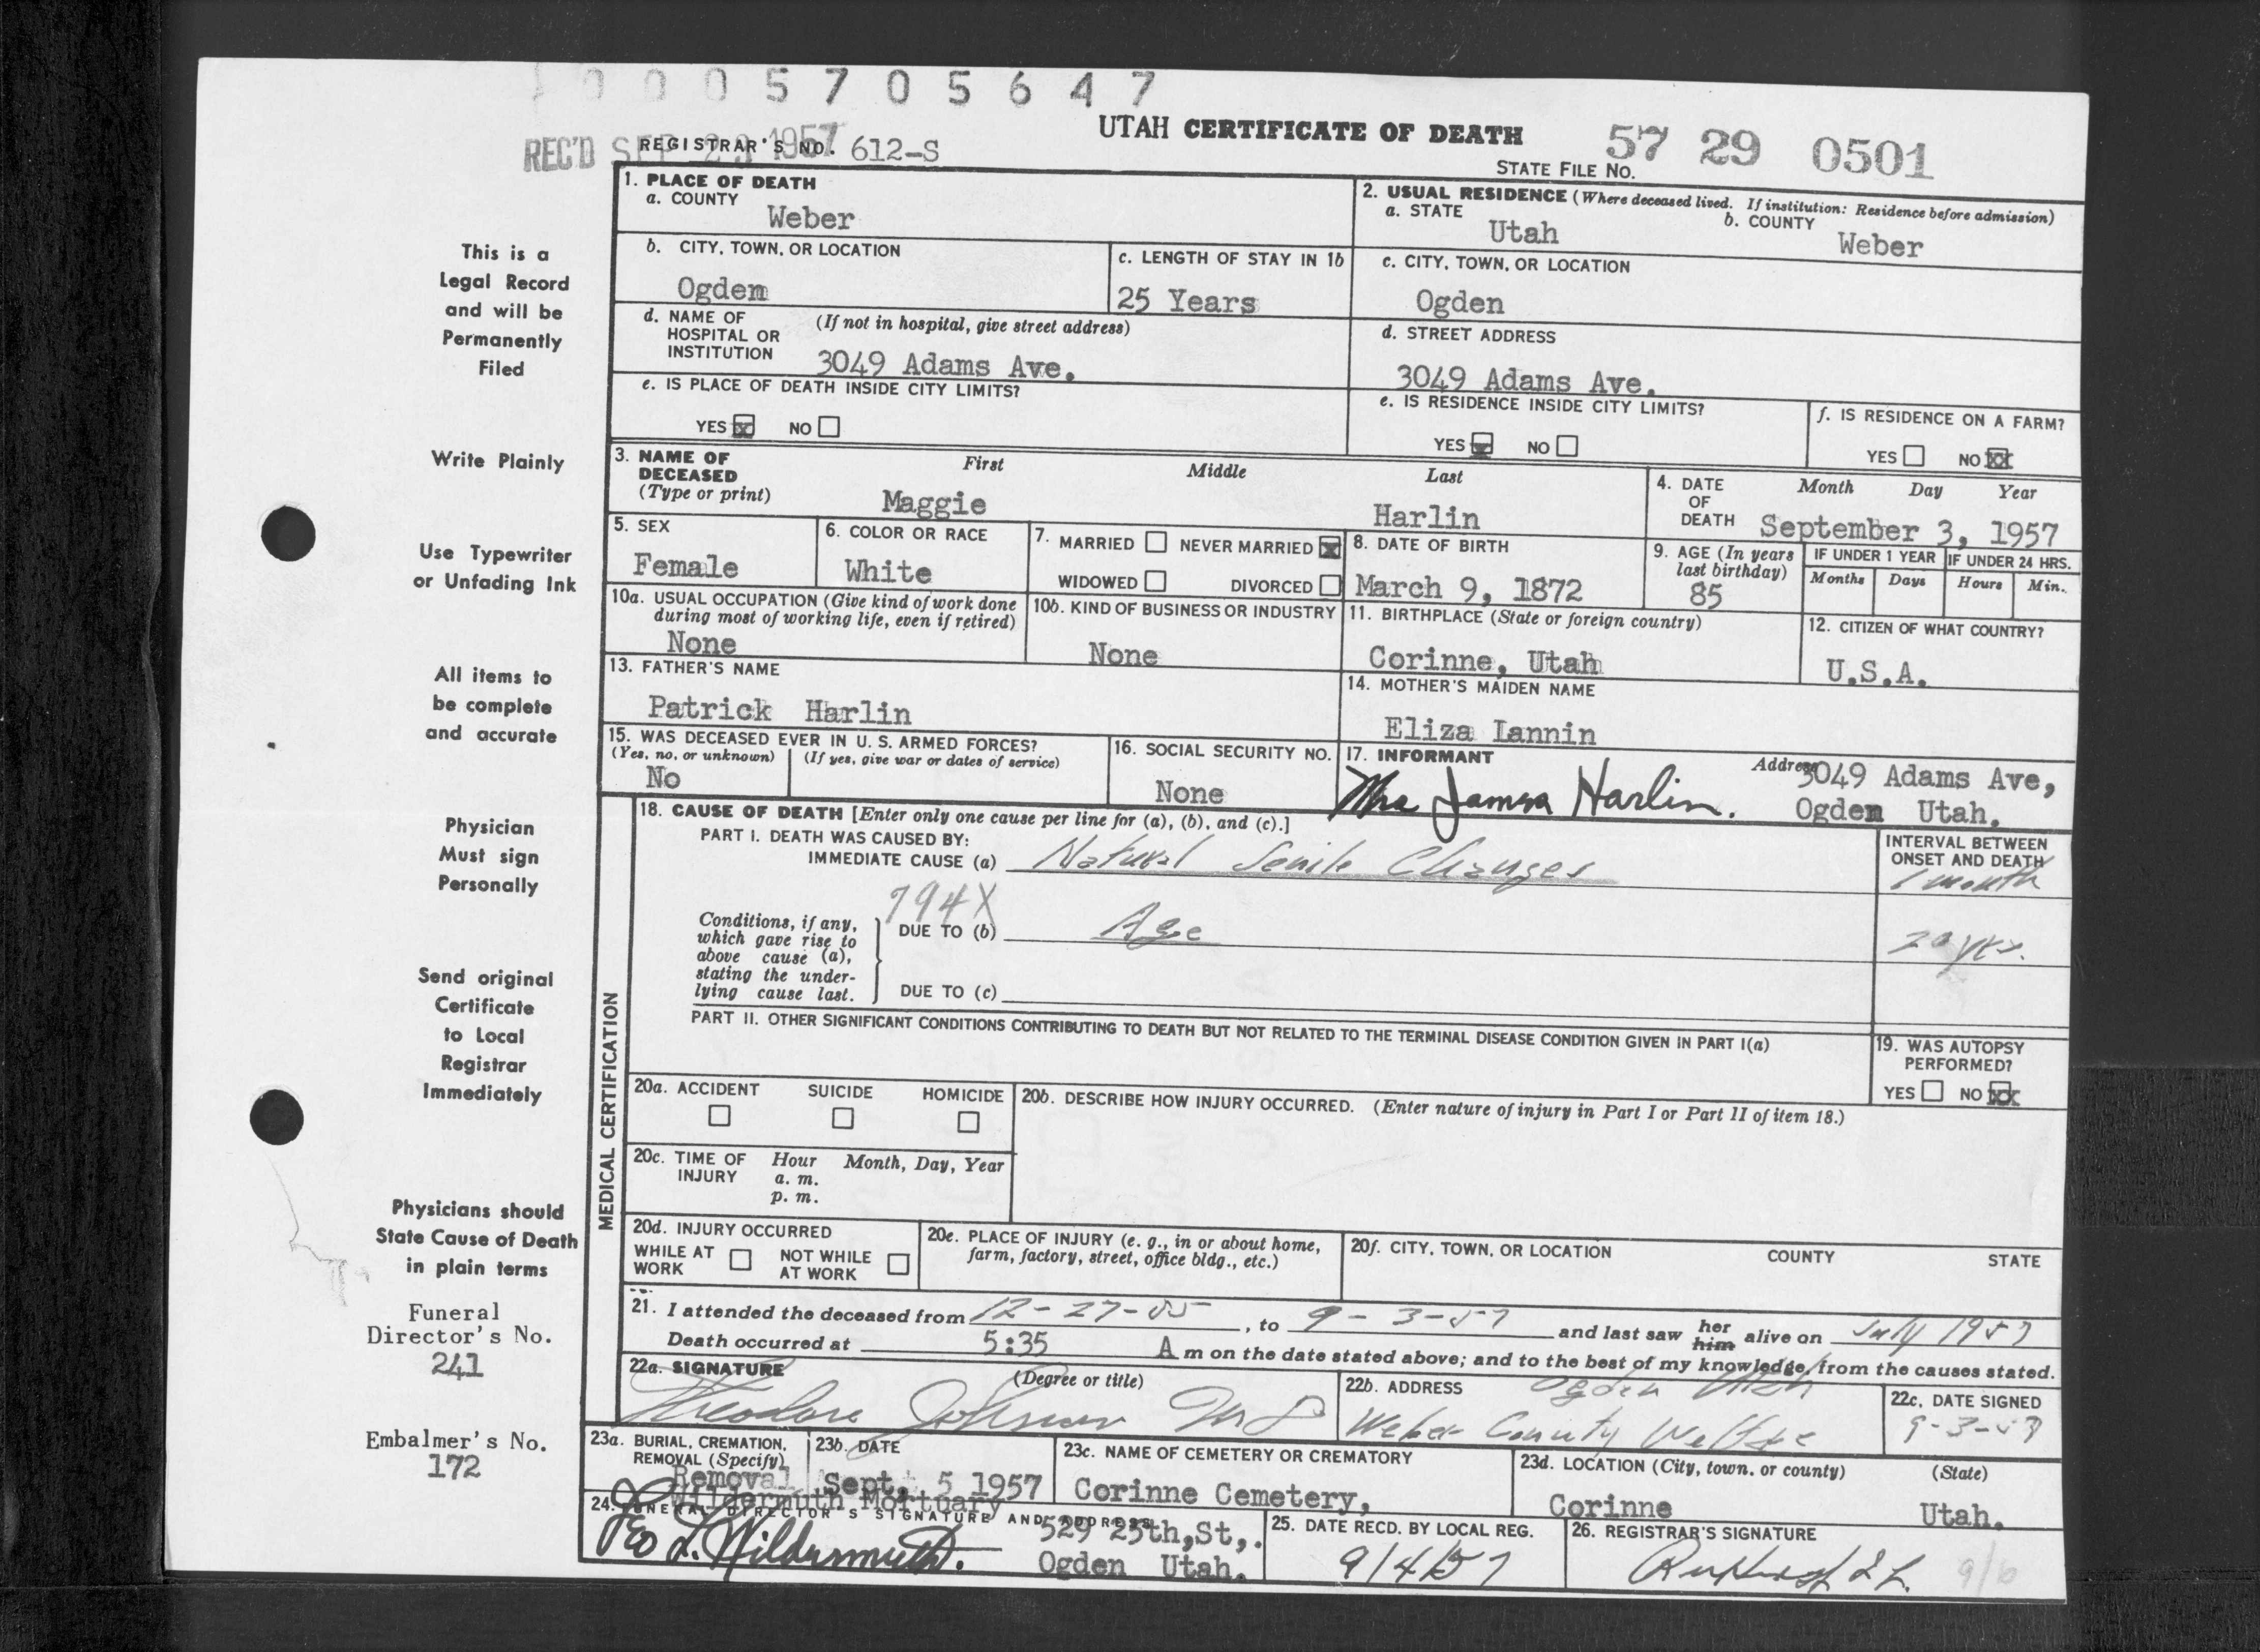 0 0 0 5 7 0 5 6 4 7
UTAH CERTIFICATE OF DEATH
REC'D SEP 23 1957
REGISTRAR'S NO. 612-S
STATE FILE NO. 57 29 0501
This is a
Legal Record
and will be
Permanently
Filed
Write Plainly
Use Typewriter
or Unfading Ink
All items to
be complete
and accurate
Physician
Must sign
Personally
Send original
Certificate
to Local
Registrar
Immediately
Physicians should
State Cause of Death
in plain terms
Funeral
Director's No.
241
Embalmer's No.
172
1. PLACE OF DEATH
a. COUNTY
Weber
2. USUAL RESIDENCE (Where deceased lived. If institution: Residence before admission)
a. STATE
Utah
b. COUNTY
Weber
b. CITY, TOWN, OR LOCATION
Ogden
c. LENGTH OF STAY IN 1b
25 Years
c. CITY, TOWN, OR LOCATION
Ogden
d. NAME OF HOSPITAL OR INSTITUTION
(If not in hospital, give street address)
3049 Adams Ave.
d. STREET ADDRESS
3049 Adams Ave.
e. IS PLACE OF DEATH INSIDE CITY LIMITS?
YES X NO
e. IS RESIDENCE INSIDE CITY LIMITS?
YES X NO
f. IS RESIDENCE ON A FARM?
YES NO XX
3. NAME OF DECEASED
(Type or print)
First Middle Last
Maggie Harlin
4. DATE OF DEATH
Month Day Year
September 3, 1957
5. SEX
Female
6. COLOR OR RACE
White
7. MARRIED NEVER MARRIED X
WIDOWED DIVORCED
8. DATE OF BIRTH
March 9, 1872
9. AGE (In years last birthday)
85
IF UNDER 1 YEAR
Months Days
IF UNDER 24 HRS.
Hours Min.
10a. USUAL OCCUPATION (Give kind of work done during most of working life, even if retired)
None
10b. KIND OF BUSINESS OR INDUSTRY
None
11. BIRTHPLACE (State or foreign country)
Corinne, Utah
12. CITIZEN OF WHAT COUNTRY?
U.S.A.
13. FATHER'S NAME
Patrick Harlin
14. MOTHER'S MAIDEN NAME
Eliza Lannin
15. WAS DECEASED EVER IN U. S. ARMED FORCES?
(Yes, no, or unknown) (If yes, give war or dates of service)
No
16. SOCIAL SECURITY NO.
None
17. INFORMANT
Mrs James Harlin.
Address
3049 Adams Ave,
Ogden Utah.
MEDICAL CERTIFICATION
18. CAUSE OF DEATH [Enter only one cause per line for (a), (b), and (c).]
PART I. DEATH WAS CAUSED BY:
IMMEDIATE CAUSE (a) Natural Senile Changes
INTERVAL BETWEEN ONSET AND DEATH
1 month
794X
Conditions, if any, which gave rise to above cause (a), stating the underlying cause last.
DUE TO (b) Age
20 yrs.
DUE TO (c)
PART II. OTHER SIGNIFICANT CONDITIONS CONTRIBUTING TO DEATH BUT NOT RELATED TO THE TERMINAL DISEASE CONDITION GIVEN IN PART I(a)
19. WAS AUTOPSY PERFORMED?
YES NO XX
20a. ACCIDENT SUICIDE HOMICIDE
20b. DESCRIBE HOW INJURY OCCURRED. (Enter nature of injury in Part I or Part II of item 18.)
20c. TIME OF INJURY
Hour Month, Day, Year
a. m.
p. m.
20d. INJURY OCCURRED
WHILE AT WORK NOT WHILE AT WORK
20e. PLACE OF INJURY (e. g., in or about home, farm, factory, street, office bldg., etc.)
20f. CITY, TOWN, OR LOCATION COUNTY STATE
21. I attended the deceased from 12-27-55, to 9-3-57 and last saw her him alive on July 1957
Death occurred at 5:35 A m on the date stated above; and to the best of my knowledge, from the causes stated.
22a. SIGNATURE (Degree or title)
Theodore Johnson MD
22b. ADDRESS
Ogden Utah
Weber County Welfare
22c. DATE SIGNED
9-3-57
23a. BURIAL, CREMATION, REMOVAL (Specify)
Removal
23b. DATE
Sept. 5 1957
23c. NAME OF CEMETERY OR CREMATORY
Corinne Cemetery,
23d. LOCATION (City, town, or county) (State)
Corinne Utah.
24. FUNERAL DIRECTOR'S SIGNATURE AND ADDRESS
Wildermuth Mortuary
Geo L. Wildermuth.
529 25th, St,.
Ogden Utah.
25. DATE RECD. BY LOCAL REG.
9/4/57
26. REGISTRAR'S SIGNATURE
9/6